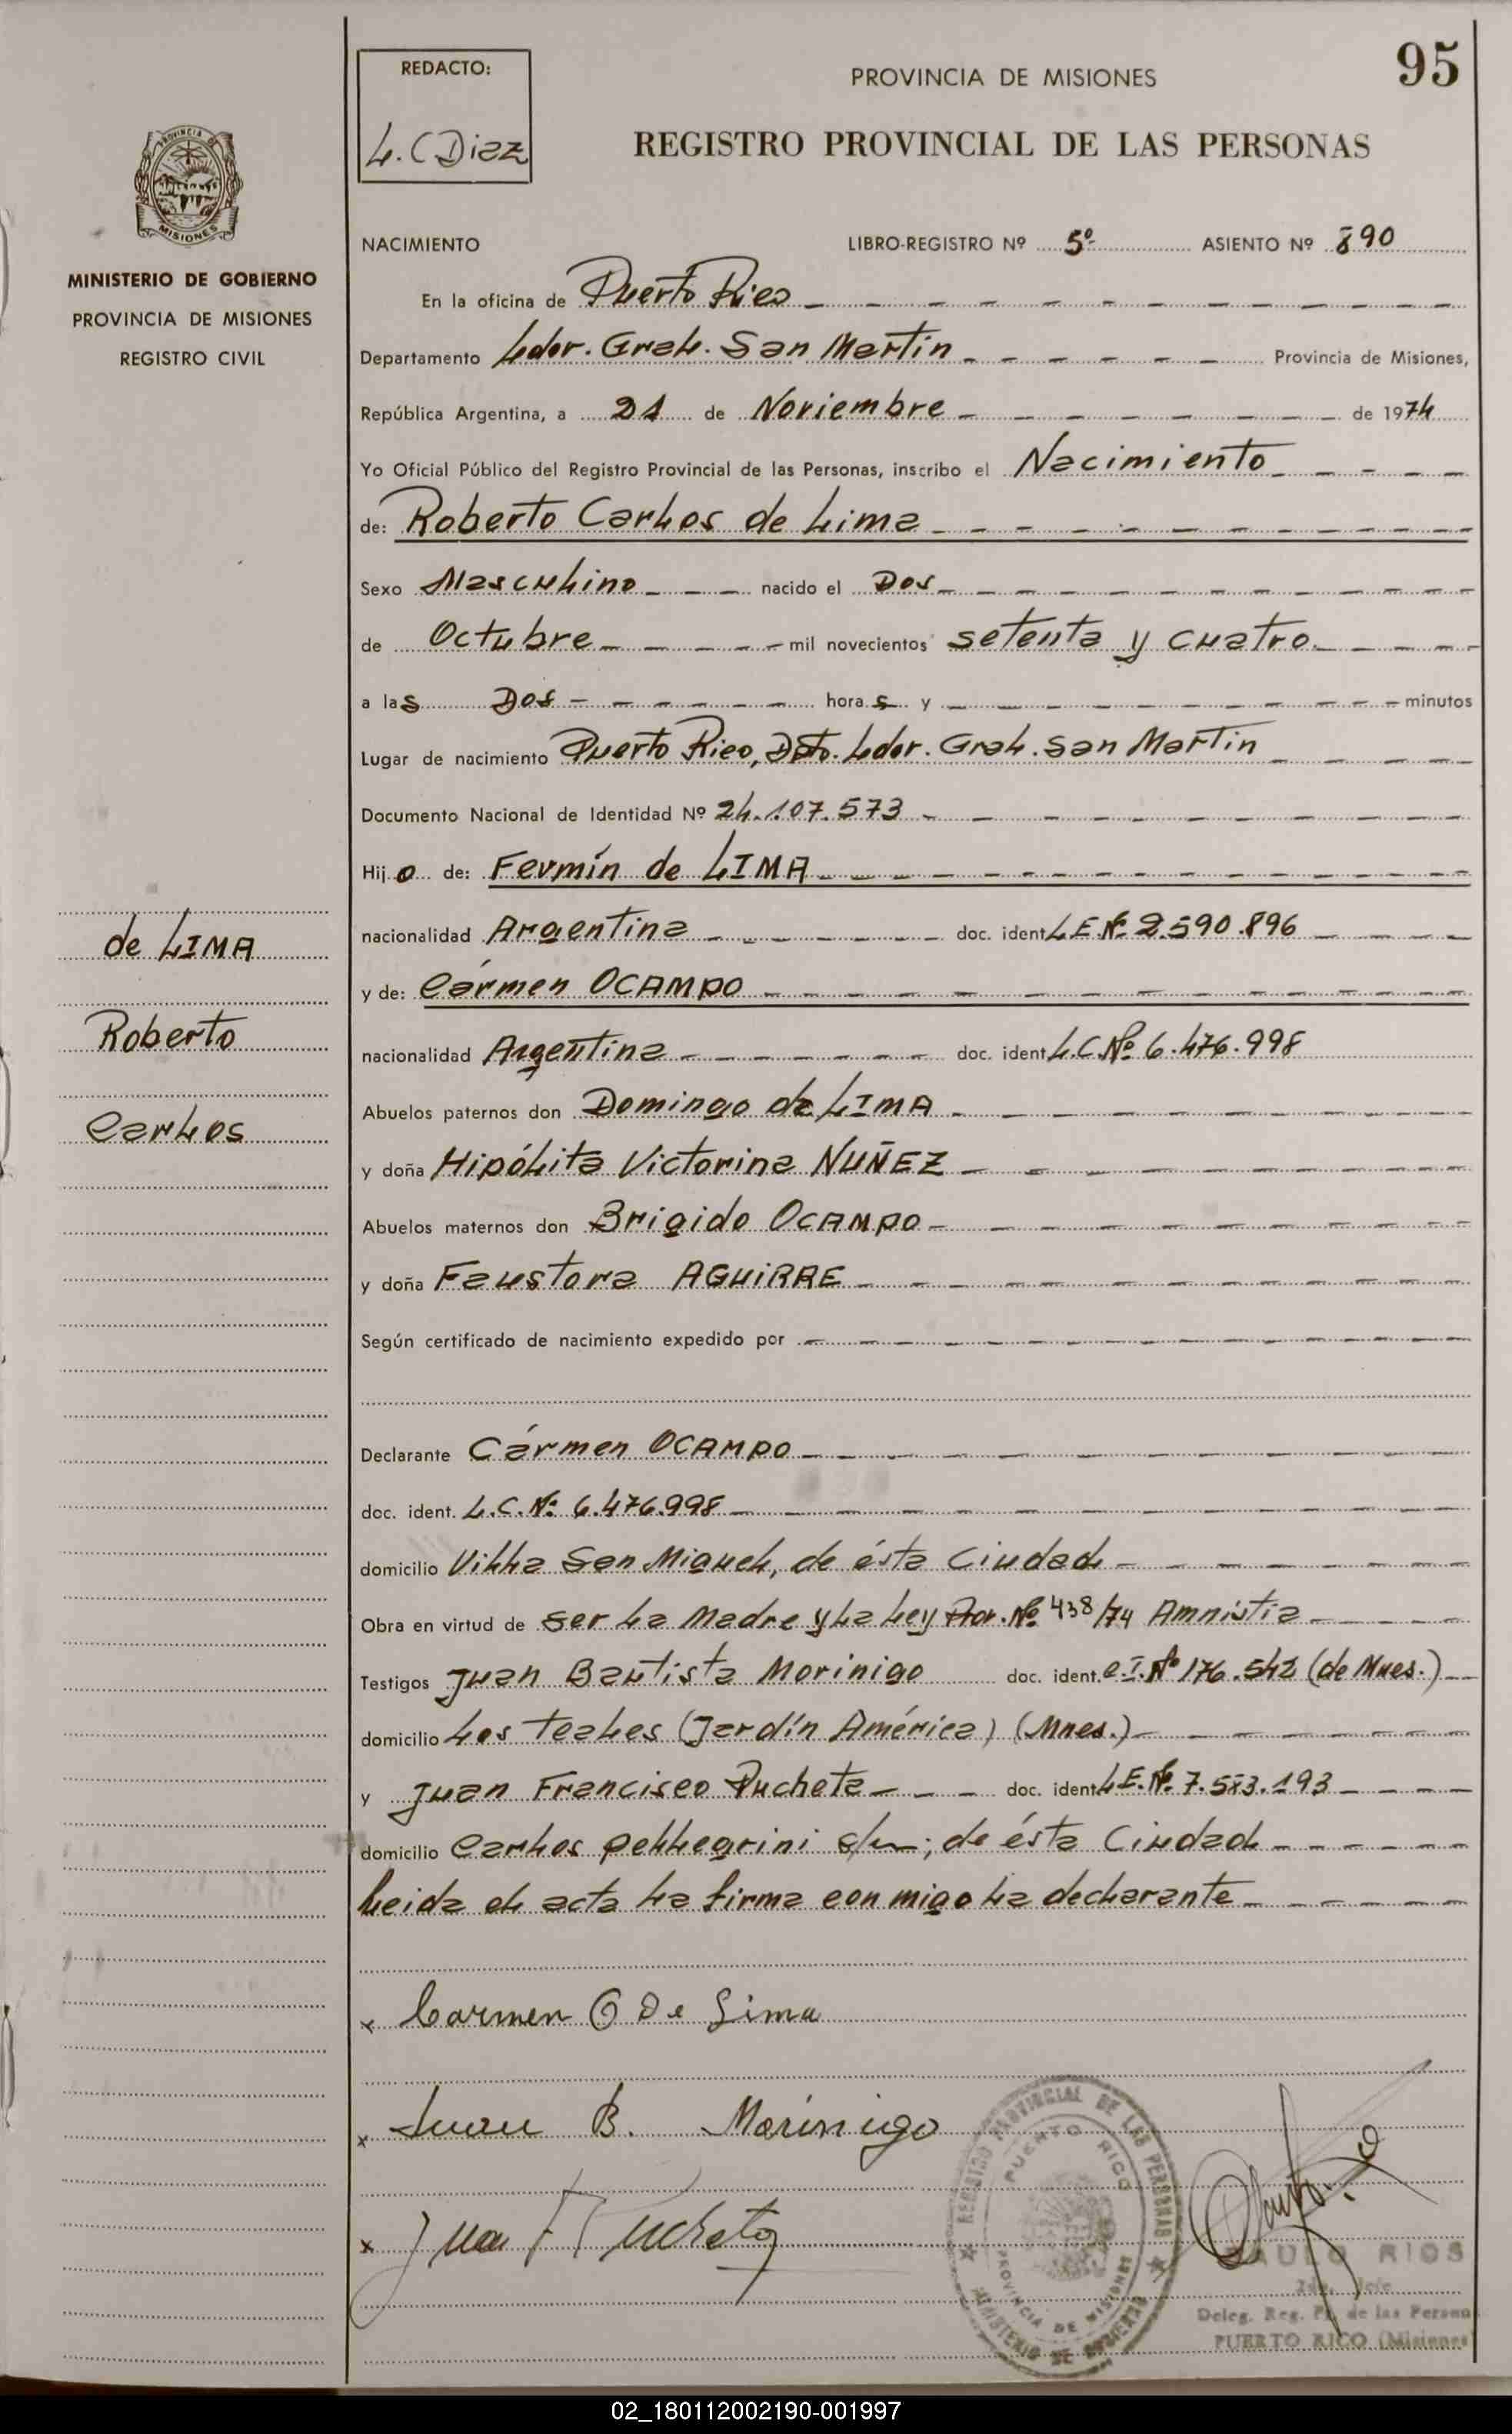 95
REDACTO:
L. C Diaz
PROVINCIA DE MISIONES
REGISTRO PROVINCIAL DE LAS PERSONAS
PROVINCIA DE
MISIONES
MINISTERIO DE GOBIERNO
PROVINCIA DE MISIONES
REGISTRO CIVIL
NACIMIENTO LIBRO-REGISTRO Nº 5º ASIENTO Nº 890
En la oficina de Puerto Rico
Departamento Ldor. Gral. San Martin Provincia de Misiones,
República Argentina, a 21 de Noviembre de 1974
Yo Oficial Público del Registro Provincial de las Personas, inscribo el Nacimiento
de: Roberto Carlos de Lima
Sexo Masculino nacido el Dos
de Octubre mil novecientos setenta y cuatro
a las Dos horas y minutos
Lugar de nacimiento Puerto Rico, Dpto. Ldor. Gral. San Martin
Documento Nacional de Identidad Nº 24.107.573
Hijo de: Fermín de LIMA
nacionalidad Argentina doc. ident L.E.Nº 2.590.896
y de: Cármen OCAMPO
nacionalidad Argentina doc. ident L.C.Nº 6.476.998
Abuelos paternos don Domingo de LIMA
y doña Hipólita Victorina NUÑEZ
Abuelos maternos don Brigido OCAMPO
y doña Faustora AGUIRRE
Según certificado de nacimiento expedido por
Declarante Cármen OCAMPO
doc. ident. L.C.Nº 6.476.998
domicilio Villa San Miguel, de ésta Ciudad
Obra en virtud de ser la Madre y la Ley Pror. Nº 438/74 Amnistia
Testigos Juan Bautista Morinigo doc. ident. C.I.Nº 176.542 (de Mnes.)
domicilio Los Teales (Jardín América) (Mnes.)
y Juan Francisco Pucheta doc. ident L.E.Nº 7.583.193
domicilio Carlos pellegrini s/n; de ésta Ciudad
Leida el acta la firma conmigo la declarante
x Carmen O De Lima
x Juan B. Morinigo
x Juan F Pucheta
de LIMA
Roberto
Carlos
REGISTRO PROVINCIAL DE LAS PERSONAS
PUERTO RICO
PROVINCIA DE MISIONES
MINISTERIO DE GOBIERNO
PAULO RIOS
2do. Jefe
Deleg. Reg. P. de las Persona
PUERTO RICO (Misiones
02_180112002190-001997